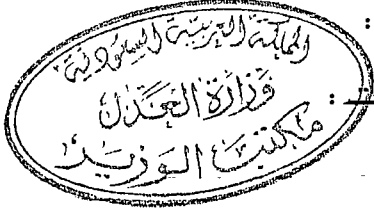 المملكة العربية السعودية
وزارة العدل
مكتب الوزير
:
: